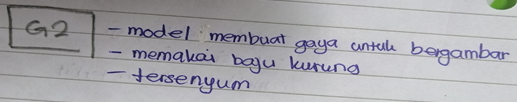 G2
- model membuat gaya untuk bergambar
- memakai baju kurung
- tersenyum